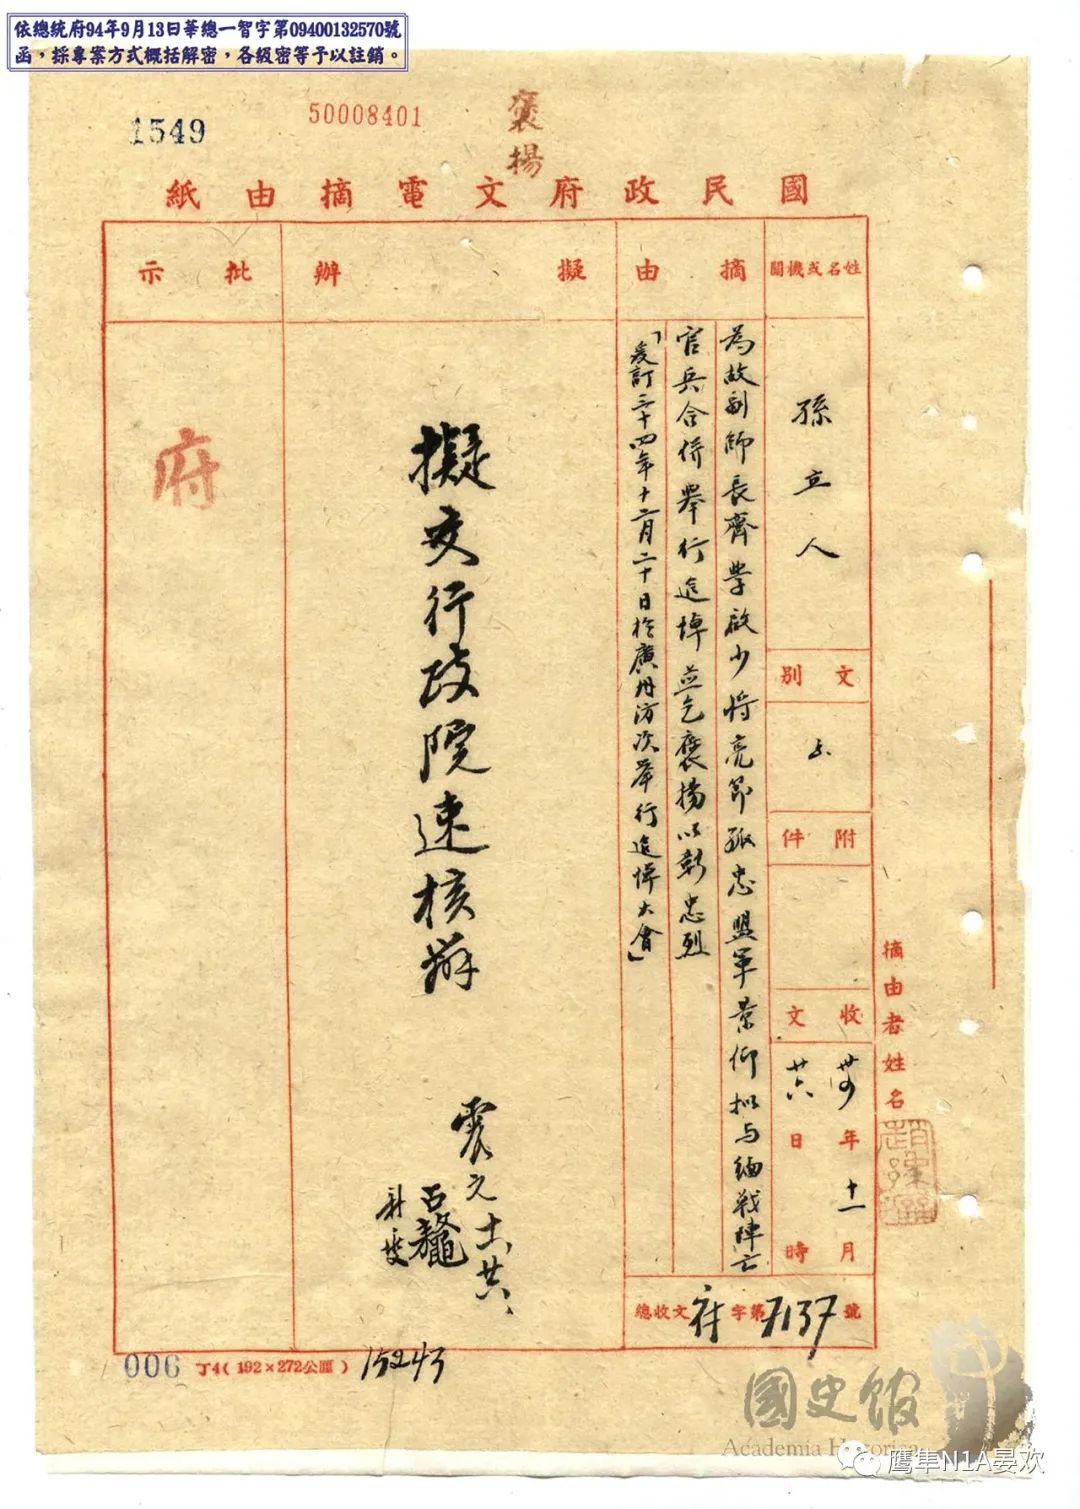 依總統府94年9月13日華總一智字第09400132570號
函，採專案方式概括解密，各級密等予以註銷。
1549
50008401
褒揚
國民政府文電摘由紙
姓名或機關
孫立人
文別
附件
收文
卅四年十一月
廿六日 時
摘由
為故副師長齊學啟少將亮節孤忠盟軍景仰擬与緬戰陣亡
官兵合併舉行追悼並乞褒揚以彰忠烈
「爰訂三十四年十二月二十日於廣州防次舉行追悼大會」
擬辦
擬交行政院速核辦
震元十一廿六
批示
府
摘由者姓名
總收文府字第7137號
006
丁4(192×272公厘)
15243
國史館
Academia Historica
鹰隼N1A晏欢